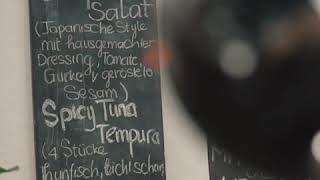 Salat
(Japanische Style
mit hausgemachter
Dressing, Tomate,
Gurke, geröstete
Sesam)
Spicy Tuna
Tempura
(4 Stücke